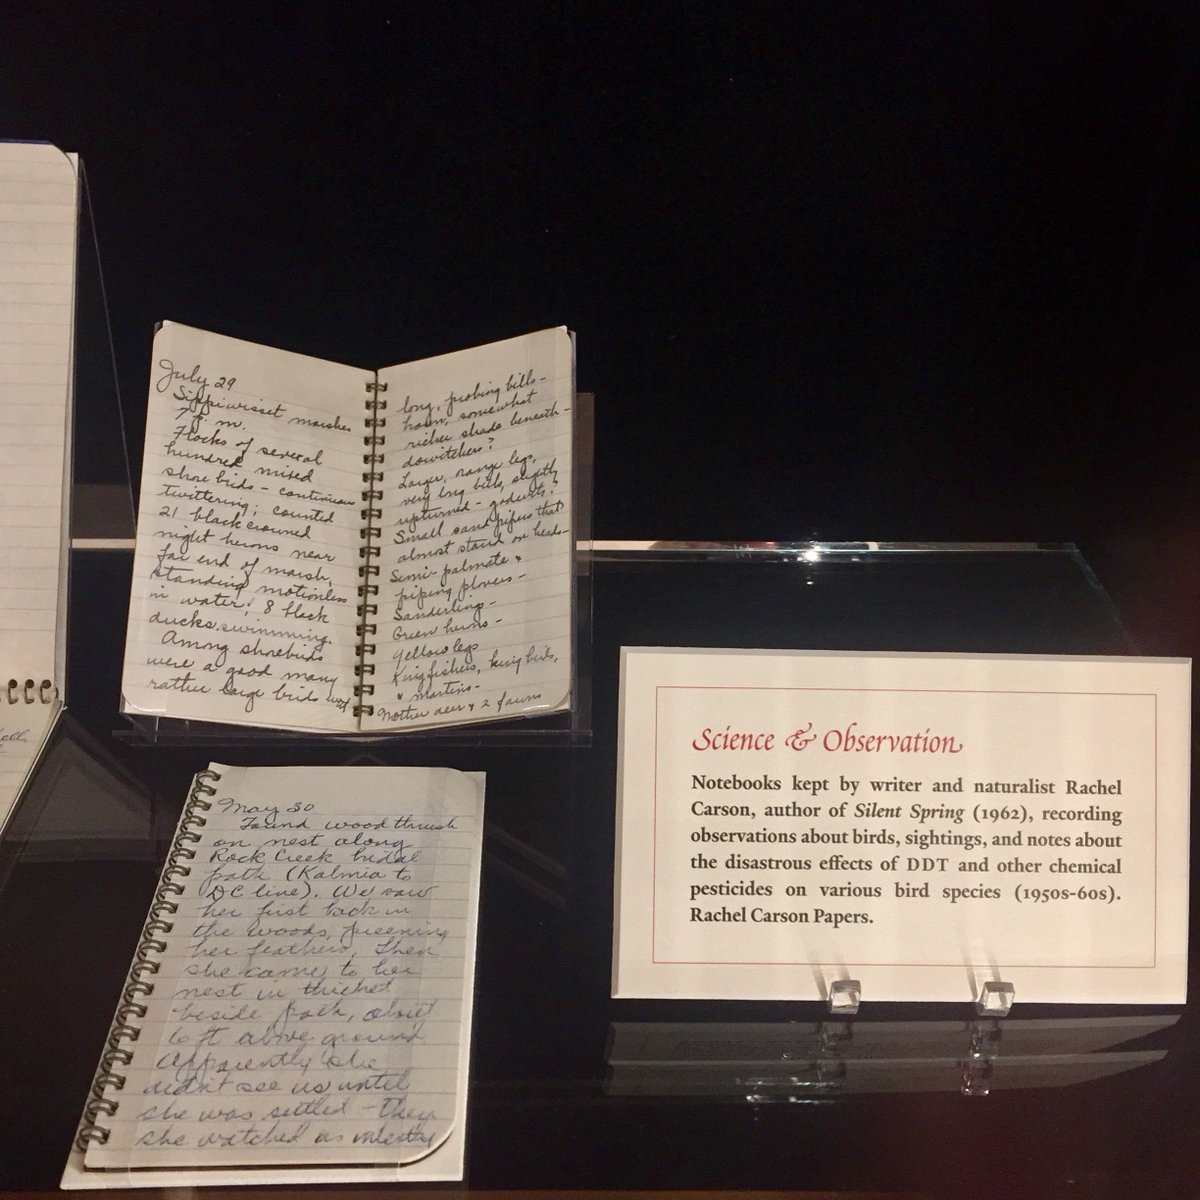 July 29
Sippiwisset marshes
7 p.m.
Flocks of several
hundred mixed
shore birds - continuous
twittering; counted
21 black crowned
night herons near
far end of marsh,
standing motionless
in water; 8 black
ducks swimming.
Among shorebirds
were a good many
rather large birds with
long, probing bills -
brown, somewhat
richer shade beneath -
dowitchers?
Larger, orange legs,
very long bills, slightly
upturned - godwits?
Small sandpipers that
almost stand on heads -
Semi-palmate &
piping plovers -
Sanderling -
Green herons -
Yellowlegs
Kingfishers, kingbirds,
& martins -
Mother deer & 2 fawns
May 30
Found wood thrush
on nest along
Rock Creek bridal
path (Kalmia to
DC line). We saw
her first back in
the woods, preening
her feathers. Then
she came to her
nest in thicket
beside path, about
6 ft above ground
Apparently she
didn't see us until
she was settled - then
she watched us intently
Science & Observation
Notebooks kept by writer and naturalist Rachel
Carson, author of Silent Spring (1962), recording
observations about birds, sightings, and notes about
the disastrous effects of DDT and other chemical
pesticides on various bird species (1950s-60s).
Rachel Carson Papers.